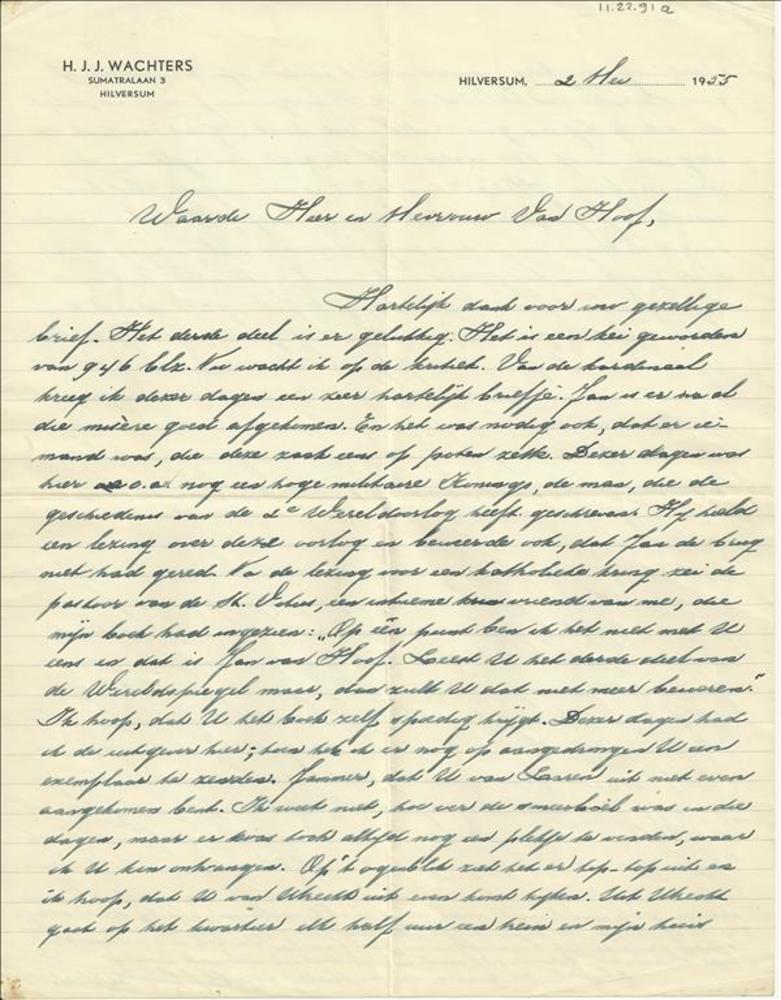 11.22.91 a
H. J. J. WACHTERS
SUMATRALAAN 3
HILVERSUM
HILVERSUM, 2 Mei 1955
Waarde Heer en Mevrouw Van Hoof,
Hartelijk dank voor uw gezellige
brief. Het derde deel is er gelukkig. Het is een kei geworden
van 946 blz. Nu wacht ik op de kritiek. Van de kardinaal
kreeg ik dezer dagen een zeer hartelijk briefje. Jan is er na al
die misère goed afgekomen. En het was nodig ook, dat er ie-
mand was, die deze zaak eens op poten zette. Dezer dagen was
hier o.a. nog een hoge militaire Konings, de man, die de
geschiedenis van de 2e Wereldoorlog heeft geschreven. Hij hield
een lezing over deze oorlog en beweerde ook, dat Jan de brug
niet had gered. Na de lezing voor een katholieke kring zei de
pastoor van de St. Vitus, een intieme vriend van me, die
mijn boek had ingezien: "Op één punt ben ik het niet met U
eens en dat is Jan van Hoof. Leest U het derde deel van
de Wereldspiegel maar, dan zult U dat niet meer beweren."
Ik hoop, dat U het boek zelf spoedig krijgt. Dezer dagen had
ik de uitgever hier; toen heb ik er nog op aangedrongen U een
exemplaar te zenden. Jammer, dat U van Laaren uit niet even
aangekomen bent. Ik weet niet, hoe ver de smeerboel was in die
dagen, maar er was toch altijd nog een plekje te vinden, waar
ik U kon ontvangen. Op 't ogenblik ziet het er tip-top uit en
ik hoop, dat U van Utrecht uit even komt kijken. Uit Utrecht
gaat op het kwartier elk half uur een trein en mijn huis